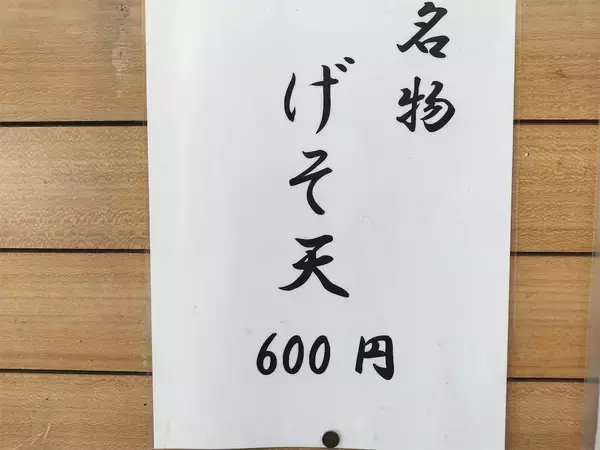 名物
げそ天
600円